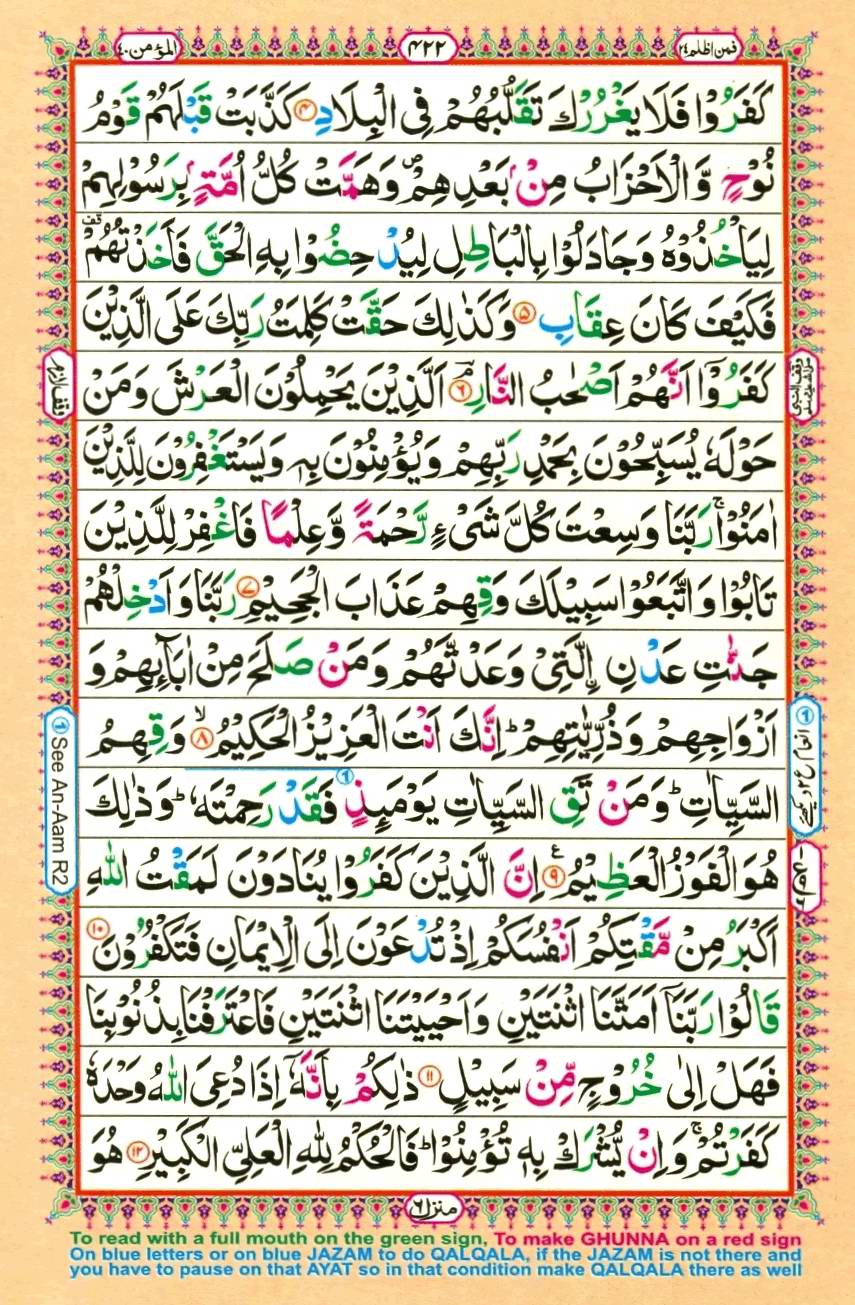 المؤمن ٤٠
٤٢٢
فمن اظلم ٢٤
كَفَرُوْا فَلَا يَغْرُرْكَ تَقَلُّبُهُمْ فِى الْبِلَادِ ۴ كَذَّبَتْ قَبْلَهُمْ قَوْمُ
نُوْحٍ وَّالْاَحْزَابُ مِنْۢ بَعْدِهِمْ ۪ وَهَمَّتْ كُلُّ اُمَّةٍۭ بِرَسُوْلِهِمْ
لِيَاْخُذُوْهُ وَجَادَلُوْا بِالْبَاطِلِ لِيُدْحِضُوْا بِهِ الْحَقَّ فَاَخَذْتُهُمْ قف
فَكَيْفَ كَانَ عِقَابِ ۵ وَكَذٰلِكَ حَقَّتْ كَلِمَتُ رَبِّكَ عَلَى الَّذِيْنَ
كَفَرُوْۤا اَنَّهُمْ اَصْحٰبُ النَّارِ ۘ ۶ اَلَّذِيْنَ يَحْمِلُوْنَ الْعَرْشَ وَمَنْ
حَوْلَهٗ يُسَبِّحُوْنَ بِحَمْدِ رَبِّهِمْ وَيُؤْمِنُوْنَ بِهٖ وَيَسْتَغْفِرُوْنَ لِلَّذِيْنَ
اٰمَنُوْا ۚ رَبَّنَا وَسِعْتَ كُلَّ شَىْءٍ رَّحْمَةً وَّعِلْمًا فَاغْفِرْ لِلَّذِيْنَ
تَابُوْا وَاتَّبَعُوْا سَبِيْلَكَ وَقِهِمْ عَذَابَ الْجَحِيْمِ ۷ رَبَّنَا وَاَدْخِلْهُمْ
جَنّٰتِ عَدْنِ ِۨالَّتِىْ وَعَدْتَّهُمْ وَمَنْ صَلَحَ مِنْ اٰبَآئِهِمْ وَ
اَزْوَاجِهِمْ وَذُرِّيّٰتِهِمْ ؕ اِنَّكَ اَنْتَ الْعَزِيْزُ الْحَكِيْمُ ۙ ۸ وَقِهِمُ
السَّيِّاٰتِ ؕ وَمَنْ تَقِ السَّيِّاٰتِ يَوْمَئِذٍ فَقَدْ رَحِمْتَهٗ ؕ وَذٰلِكَ
هُوَ الْفَوْزُ الْعَظِيْمُ ع ۹ اِنَّ الَّذِيْنَ كَفَرُوْا يُنَادَوْنَ لَمَقْتُ اللّٰهِ
اَكْبَرُ مِنْ مَّقْتِكُمْ اَنْفُسَكُمْ اِذْ تُدْعَوْنَ اِلَى الْاِيْمَانِ فَتَكْفُرُوْنَ ۱۰
قَالُوْا رَبَّنَاۤ اَمَتَّنَا اثْنَتَيْنِ وَاَحْيَيْتَنَا اثْنَتَيْنِ فَاعْتَرَفْنَا بِذُنُوْبِنَا
فَهَلْ اِلٰى خُرُوْجٍ مِّنْ سَبِيْلٍ ۱۱ ذٰلِكُمْ بِاَنَّهٗۤ اِذَا دُعِىَ اللّٰهُ وَحْدَهٗ
كَفَرْتُمْ ۚ وَاِنْ يُّشْرَكْ بِهٖ تُؤْمِنُوْا ؕ فَالْحُكْمُ لِلّٰهِ الْعَلِىِّ الْكَبِيْرِ ۱۲ هُوَ
وقف لازم
① See An-Aam R2
① انعام ع ۲ دیکھئے
منزل ٦
To read with a full mouth on the green sign, To make GHUNNA on a red sign
On blue letters or on blue JAZAM to do QALQALA, if the JAZAM is not there and
you have to pause on that AYAT so in that condition make QALQALA there as well